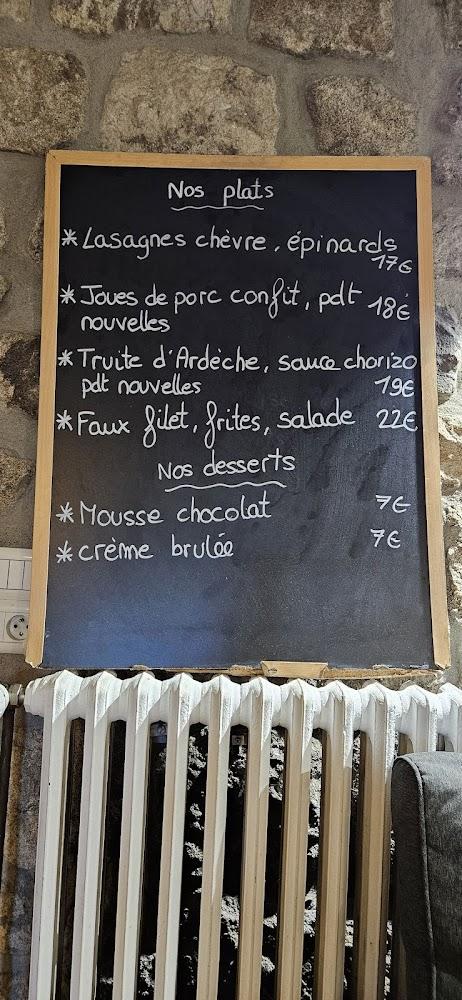 Nos plats
* Lasagnes chèvre, épinards
17€
* Joues de porc confit, pdt 18€
nouvelles
* Truite d'Ardèche, sauce chorizo
pdt nouvelles 19€
* Faux filet, frites, salade 22€
Nos desserts
* Mousse chocolat 7€
* crème brulée 7€